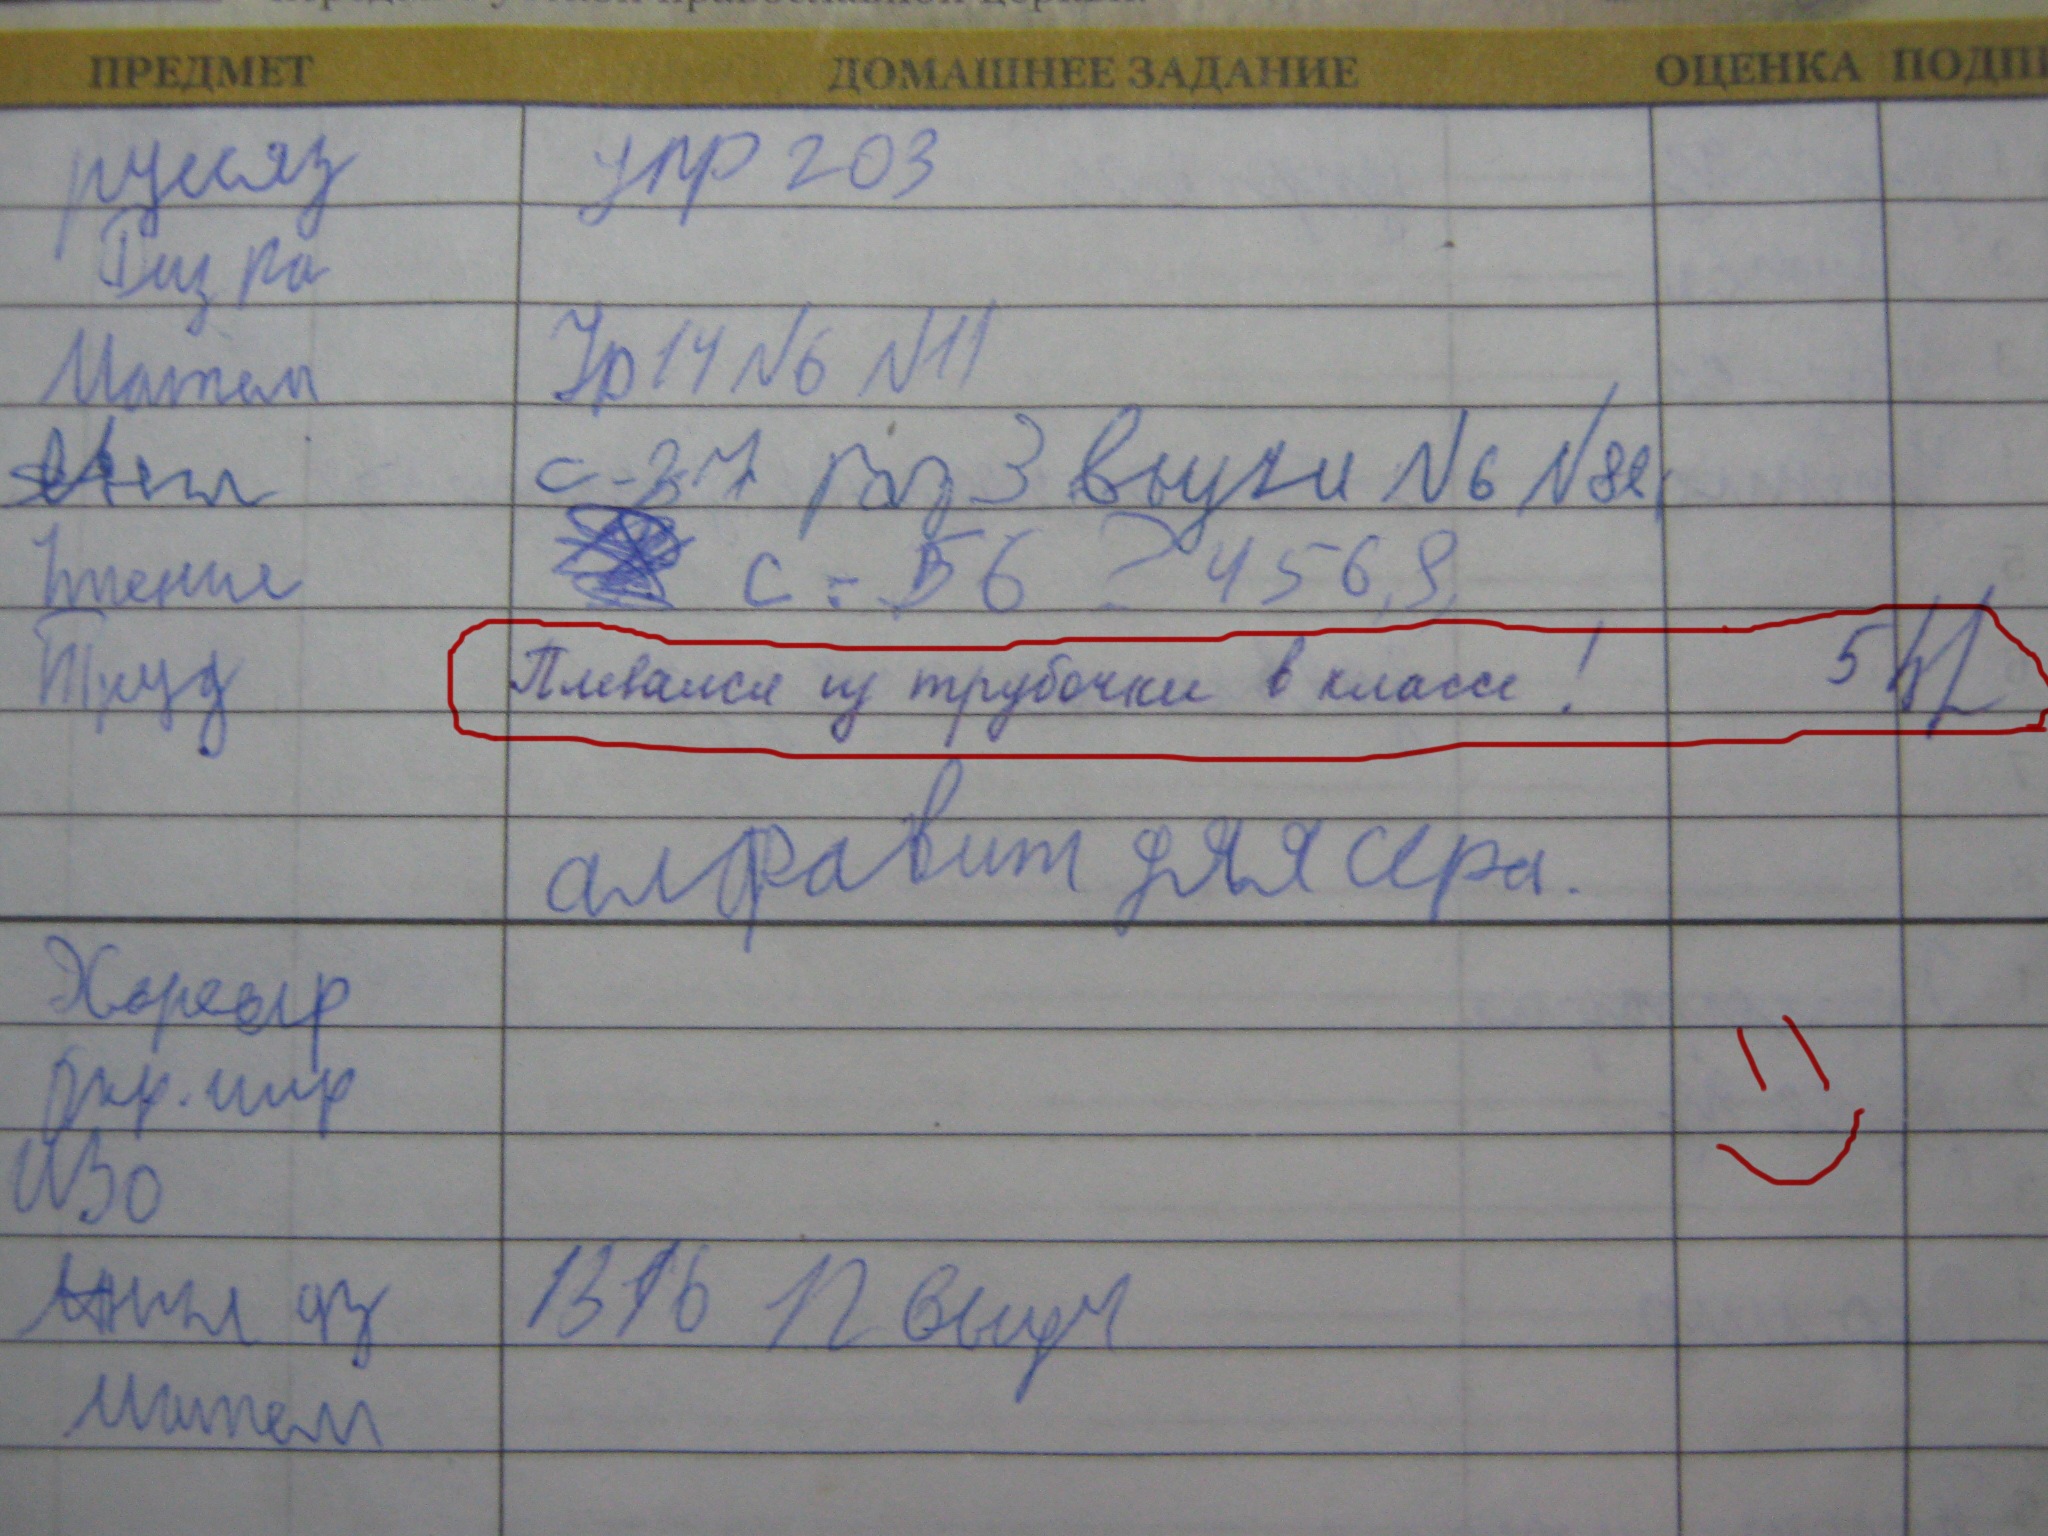 ПРЕДМЕТ ДОМАШНЕЕ ЗАДАНИЕ ОЦЕНКА ПОДПИ
русяз упр 203
Физ ра
Матем Ур 14 N6 N11
с-27 раз 3 выучи N6 N8
Чтение с-56 2 4 5 6, 9,
Труд Плевался из трубочки в классе! 5
алфавит для сера.
Хореогр
Окр. мир
ИЗО
Англ яз 13 16 12 выуч
Матем